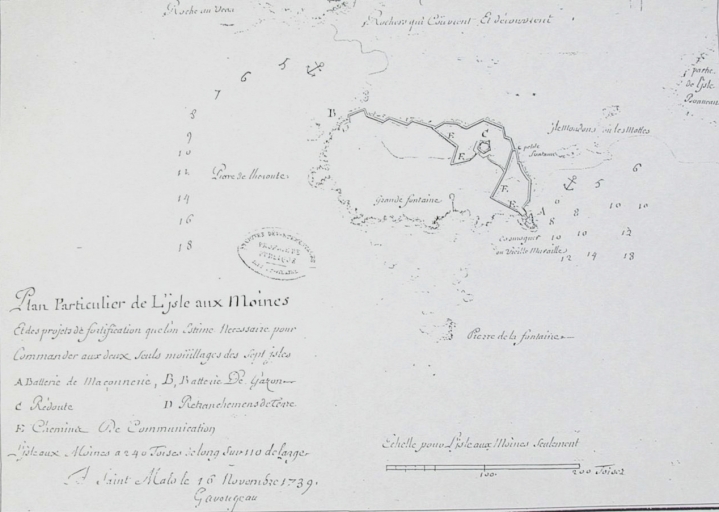 Roche au Vras
Rochers qui Couvrent Et découvrent
5
6
7
8
9
10
12
14
16
18
B
E
C
E
petite
fontaine
partie
de L'jsle
Jsle Moadons ou les Mottes
Pierre de lheroute
E
E
A
Grande fontaine
6
5
9
8
10
10
8
10
10
12
12
14
18
ou Vieille Muraille
Plan Particulier de L'jsle aux Moines
Et des projets de fortification que l'on Estime Necessaire pour
Commander aux deux seuls moüillages des sept jsles
A Batterie de Maçonnerie, B, Batterie De Gazon
C Redoute D Retranchemens de Terre
E Chemins De Communication
L'jsle aux Moines a 240 Toises de long sur 110 de large
A Saint Malo le 16 Novembre 1739.
Garengeau
Pierre de la fontaine
Echelle pour L'jsle aux Moines Seulement
100 200 Toises